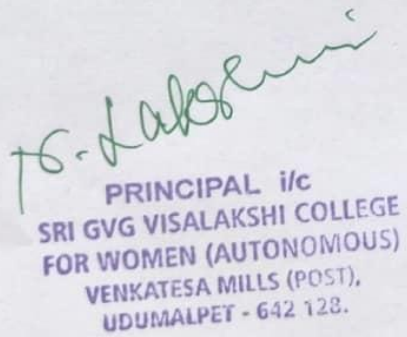 Lakshmi
PRINCIPAL i/c
SRI GVG VISALAKSHI COLLEGE
FOR WOMEN (AUTONOMOUS)
VENKATESA MILLS (POST),
UDUMALPET - 642 128.